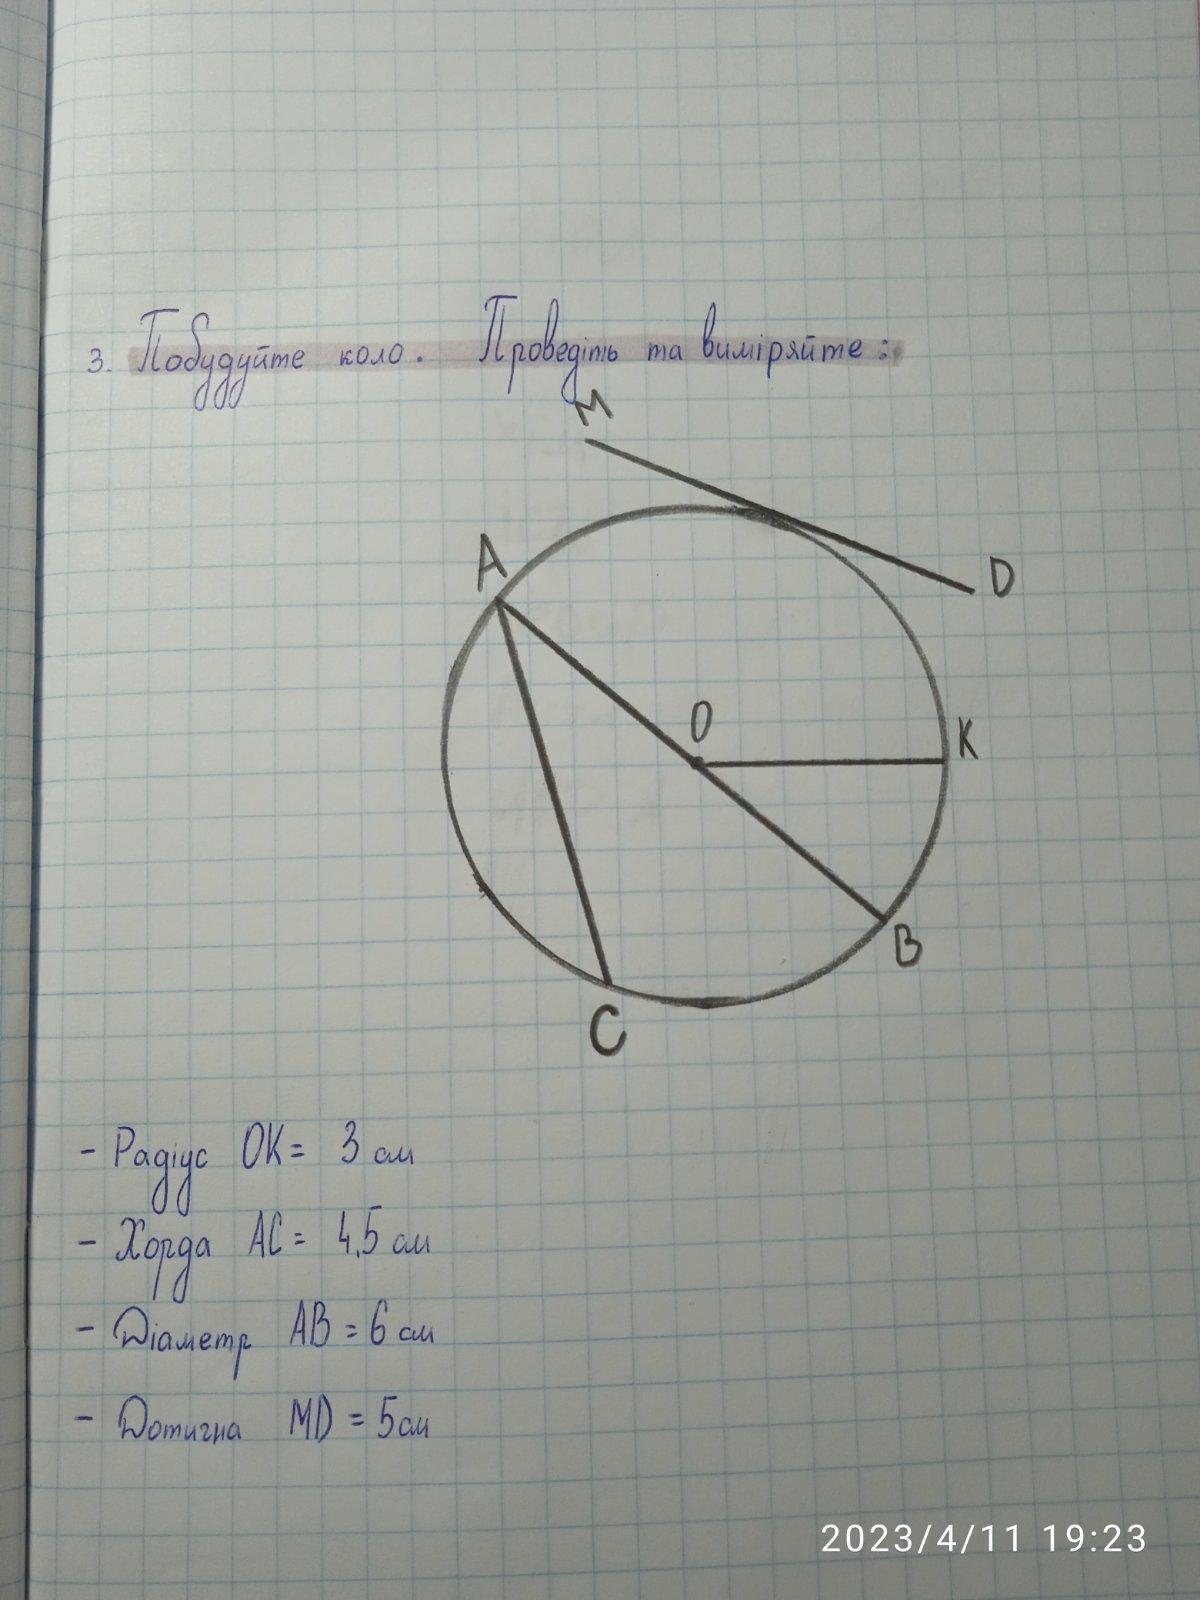 3. Побудуйте коло. Проведіть та виміряйте:
M
A
D
O
K
B
C
- Радіус OK = 3 см
- Хорда AC = 4,5 см
- Діаметр AB = 6 см
- Дотична MD = 5 см
2023/4/11 19:23